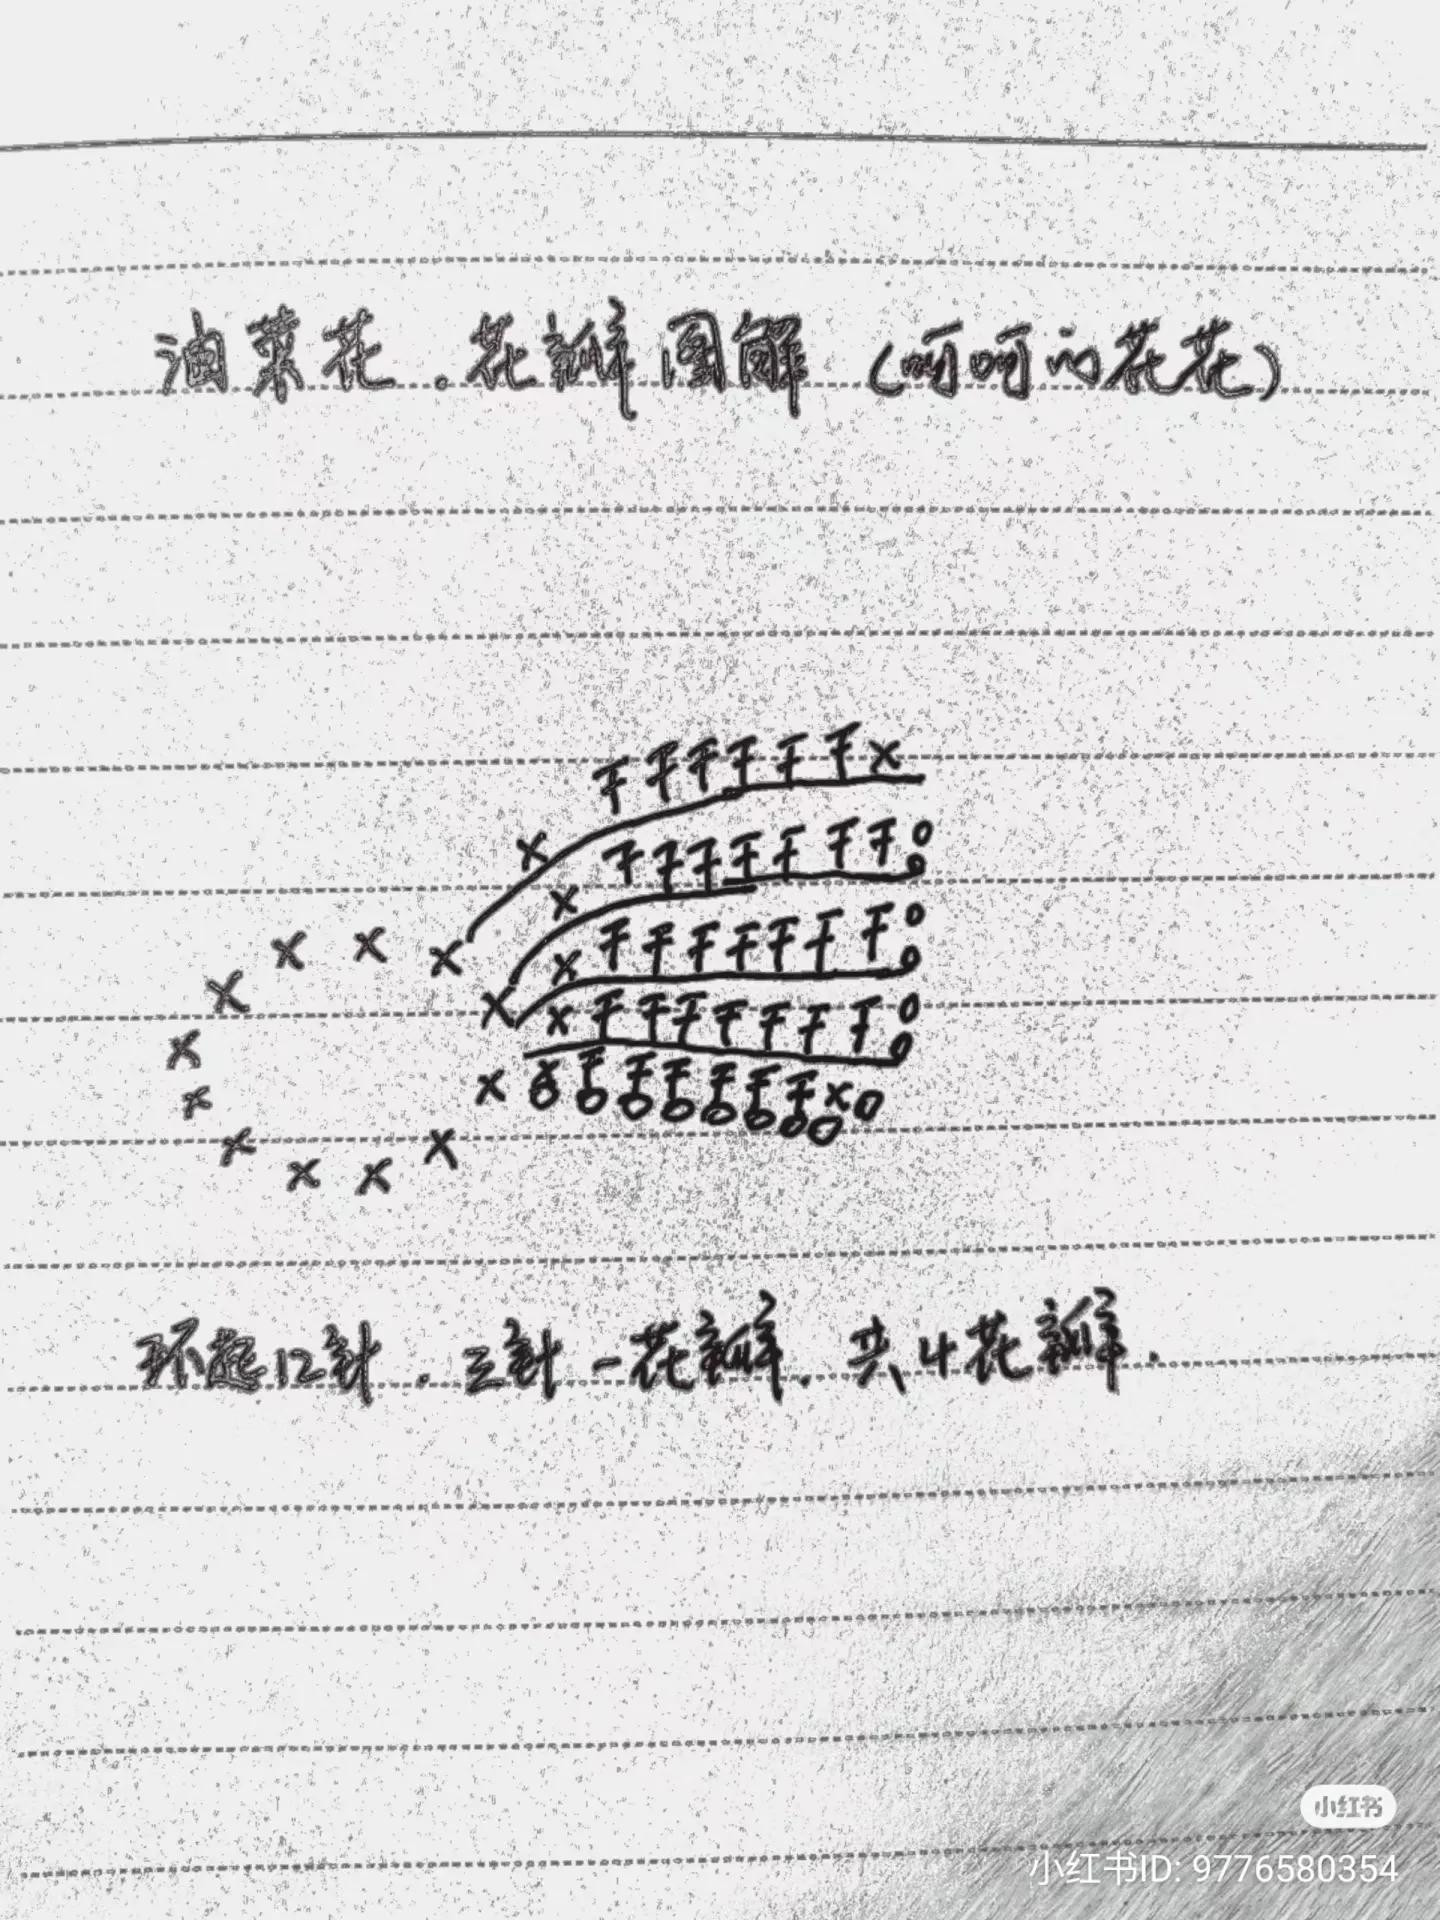 油菜花.花瓣图解(呵呵的花花)
环起12针.三针一花瓣.共4花瓣.
小红书
小红书ID: 9776580354